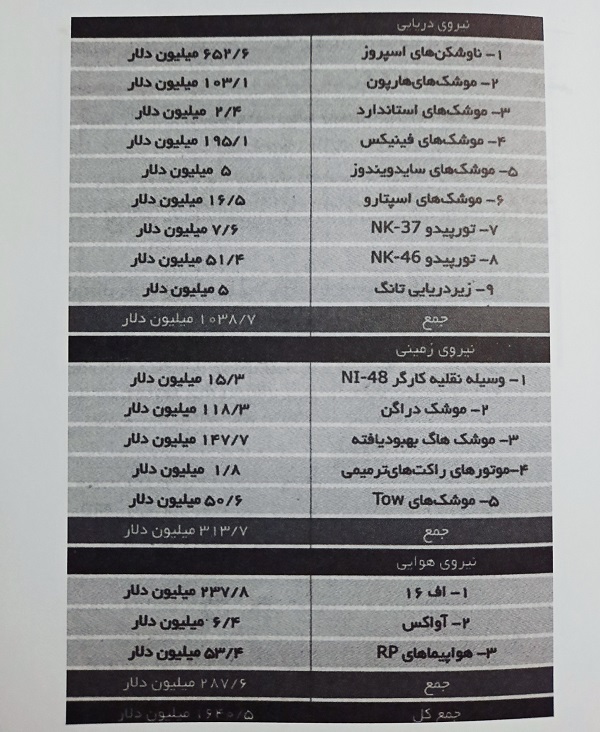 نیروی دریایی
۱- ناوشکن‌های اسپروز ۶۵۲/۶ میلیون دلار
۲- موشک‌های‌هارپون ۱۰۳/۱ میلیون دلار
۳- موشک‌های استاندارد ۲/۴ میلیون دلار
۴- موشک‌های فینیکس ۱۹۵/۱ میلیون دلار
۵- موشک‌های سایدویندوز ۵ میلیون دلار
۶- موشک‌های اسپتارو ۱۶/۵ میلیون دلار
۷- تورپیدو NK-37 ۷/۶ میلیون دلار
۸- تورپیدو NK-46 ۵۱/۴ میلیون دلار
۹- زیردریایی تانگ ۵ میلیون دلار
جمع ۱۰۳۸/۷ میلیون دلار
نیروی زمینی
۱- وسیله نقلیه کارگر NI-48 ۱۵/۳ میلیون دلار
۲- موشک دراگن ۱۱۸/۳ میلیون دلار
۳- موشک هاگ بهبودیافته ۱۴۷/۷ میلیون دلار
۴-موتورهای راکت‌های‌ترمیمی ۱/۸ میلیون دلار
۵- موشک‌های Tow ۵۰/۶ میلیون دلار
جمع ۳۱۳/۷ میلیون دلار
نیروی هوایی
۱- اف ۱۶ ۲۳۷/۸ میلیون دلار
۲- آواکس ۶/۴ میلیون دلار
۳- هواپیماهای RP ۵۳/۴ میلیون دلار
جمع ۲۸۷/۶ میلیون دلار
جمع کل ۱۶۴۰/۵ میلیون دلار